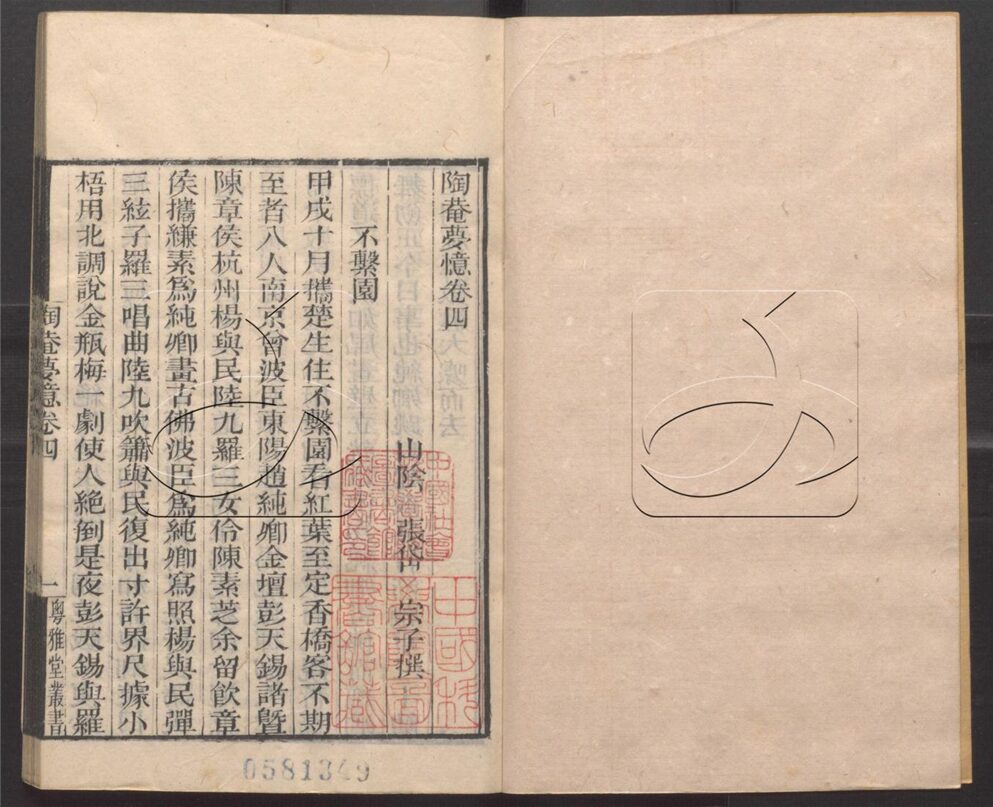 陶菴夢憶卷四
山陰 張岱 宗子撰
不繫園
甲戌十月攜楚生住不繫園看紅葉至定香橋客不期
至者八人南京曾波臣東陽趙純卿金壇彭天錫諸曁
陳章侯杭州楊與民陸九羅三女伶陳素芝余留飲章
侯攜縑素爲純卿畫古佛波臣爲純卿寫照楊與民彈
三絃子羅三唱曲陸九吹簫與民復出寸許界尺據小
梧用北調說金瓶梅一劇使人絶倒是夜彭天錫與羅
陶菴夢憶卷四
一
粵雅堂叢書
0581349